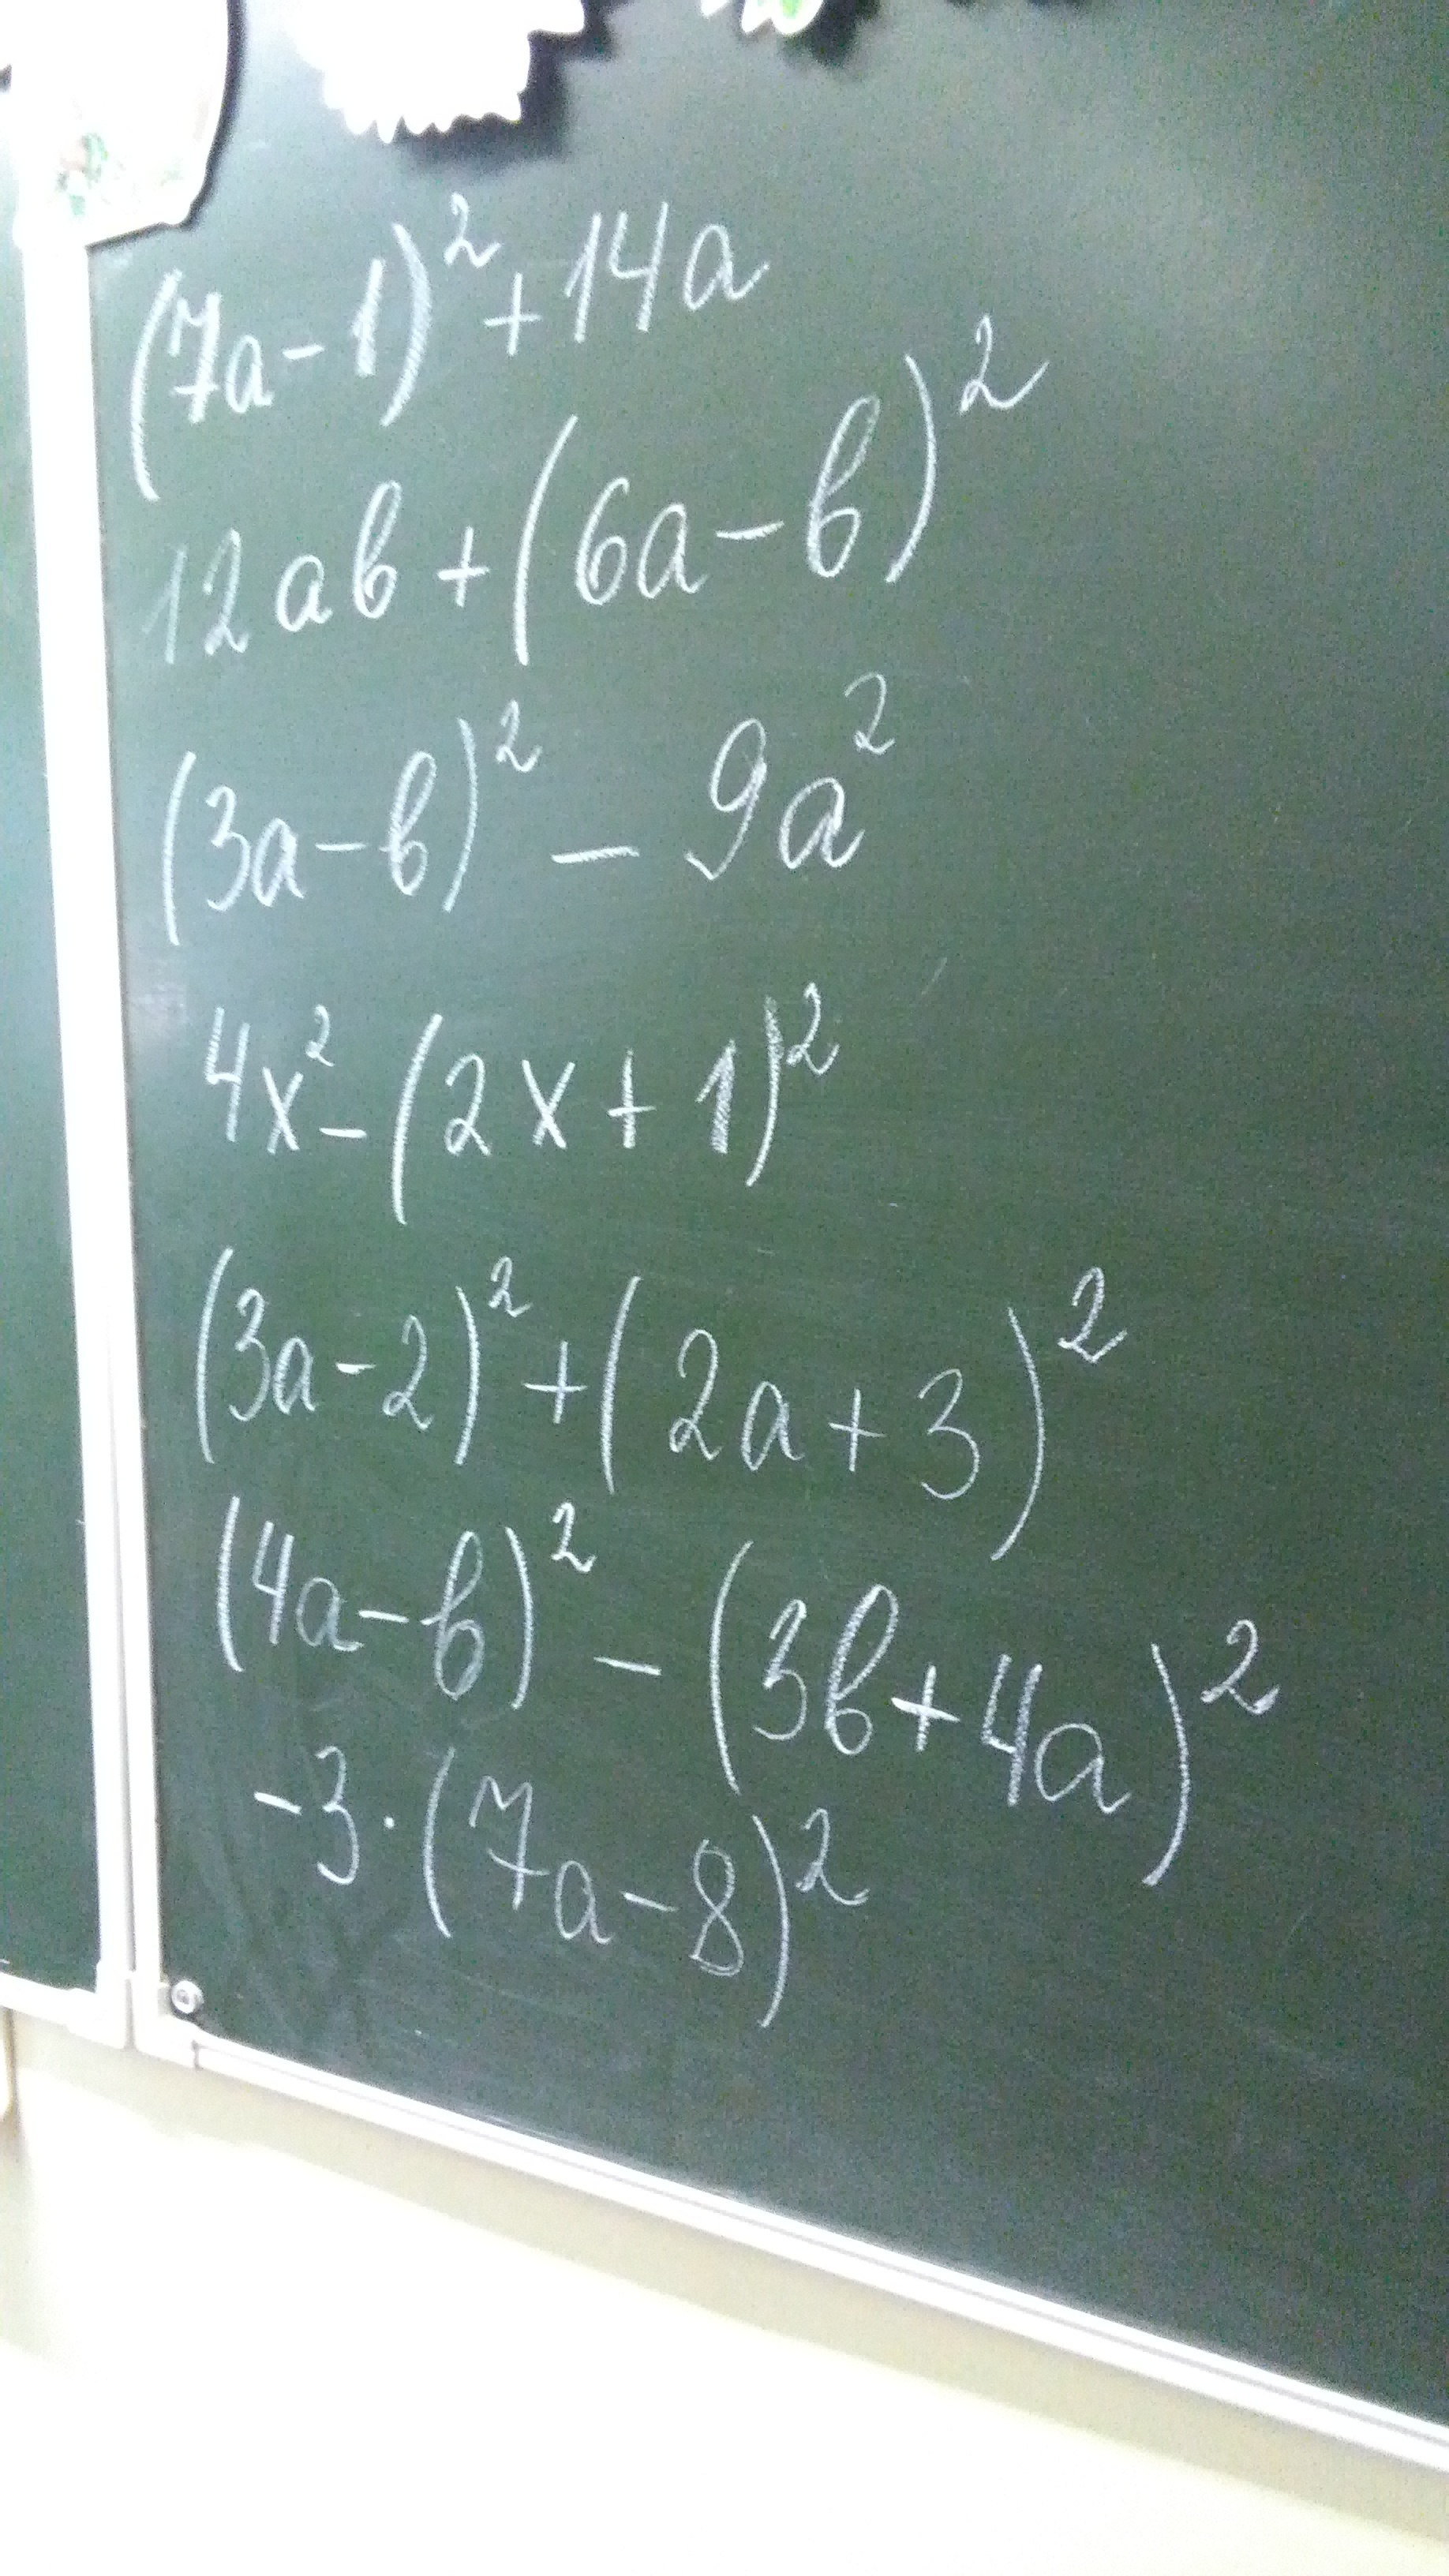 (7a-1)²+14a
12ab+(6a-b)²
(3a-b)² - 9a²
4x²-(2x+1)²
(3a-2)²+(2a+3)²
(4a-b)² - (3b+4a)²
-3·(7a-8)²